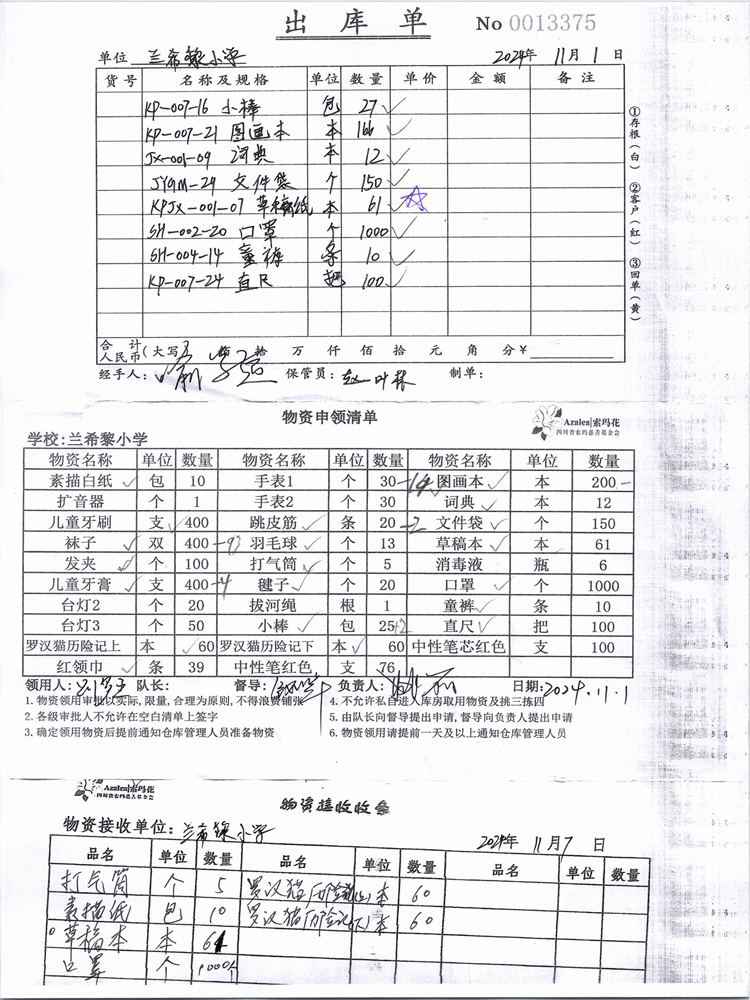 出库单 No 0013375
单位 兰希黎小学 2024年 11月 1日
货号 名称及规格 单位 数量 单价 金额 备注
KP-007-16 小棒 包 27
KP-007-21 图画本 本 166
JX-001-09 词典 本 12
JYGM-29 文件袋 个 150
KPJX-001-07 草稿纸 本 61
SH-002-20 口罩 个 1000
SH-004-14 童裤 条 10
KP-007-24 直尺 把 100
①存根(白) ②客户(红) ③回单(黄)
合计
人民币(大写) 佰 拾 万 仟 佰 拾 元 角 分 ¥
经手人: 保管员: 制单:
物资申领清单
Azalea|索玛花
四川省索玛慈善基金会
学校:兰希黎小学
物资名称 单位 数量 物资名称 单位 数量 物资名称 单位 数量
素描白纸 包 10 手表1 个 30 -14 图画本 本 200
扩音器 个 1 手表2 个 30 词典 本 12
儿童牙刷 支 400 跳皮筋 条 20 -2 文件袋 个 150
袜子 双 400 羽毛球 个 13 草稿本 本 61
发夹 个 100 打气筒 个 5 消毒液 瓶 6
儿童牙膏 支 400 -4 毽子 个 20 口罩 个 1000
台灯2 个 20 拔河绳 根 1 童裤 条 10
台灯3 个 50 小棒 包 25 直尺 把 100
罗汉猫历险记上 本 60 罗汉猫历险记下 本 60 中性笔芯红色 支 100
红领巾 条 39 中性笔红色 支 76
领用人: 队长: 督导: 负责人: 日期:2024.11.1
1. 物资领用审批以实际,限量,合理为原则,不得浪费铺张 4. 不允许私自进入库房取用物资及挑三拣四
2. 各级审批人不允许在空白清单上签字 5. 由队长向督导提出申请,督导向负责人提出申请
3. 确定领用物资后提前通知仓库管理人员准备物资 6. 物资领用请提前一天及以上通知仓库管理人员
Azalea|索玛花
四川省索玛慈善基金会
物资接收收单
物资接收单位:兰希黎小学 2024年 11月7日
品名 单位 数量 品名 单位 数量 品名 单位 数量
打气筒 个 5 罗汉猫历险记(上) 本 60
素描纸 包 10 罗汉猫历险记(下) 本 60
草稿本 本 61
口罩 个 1000个